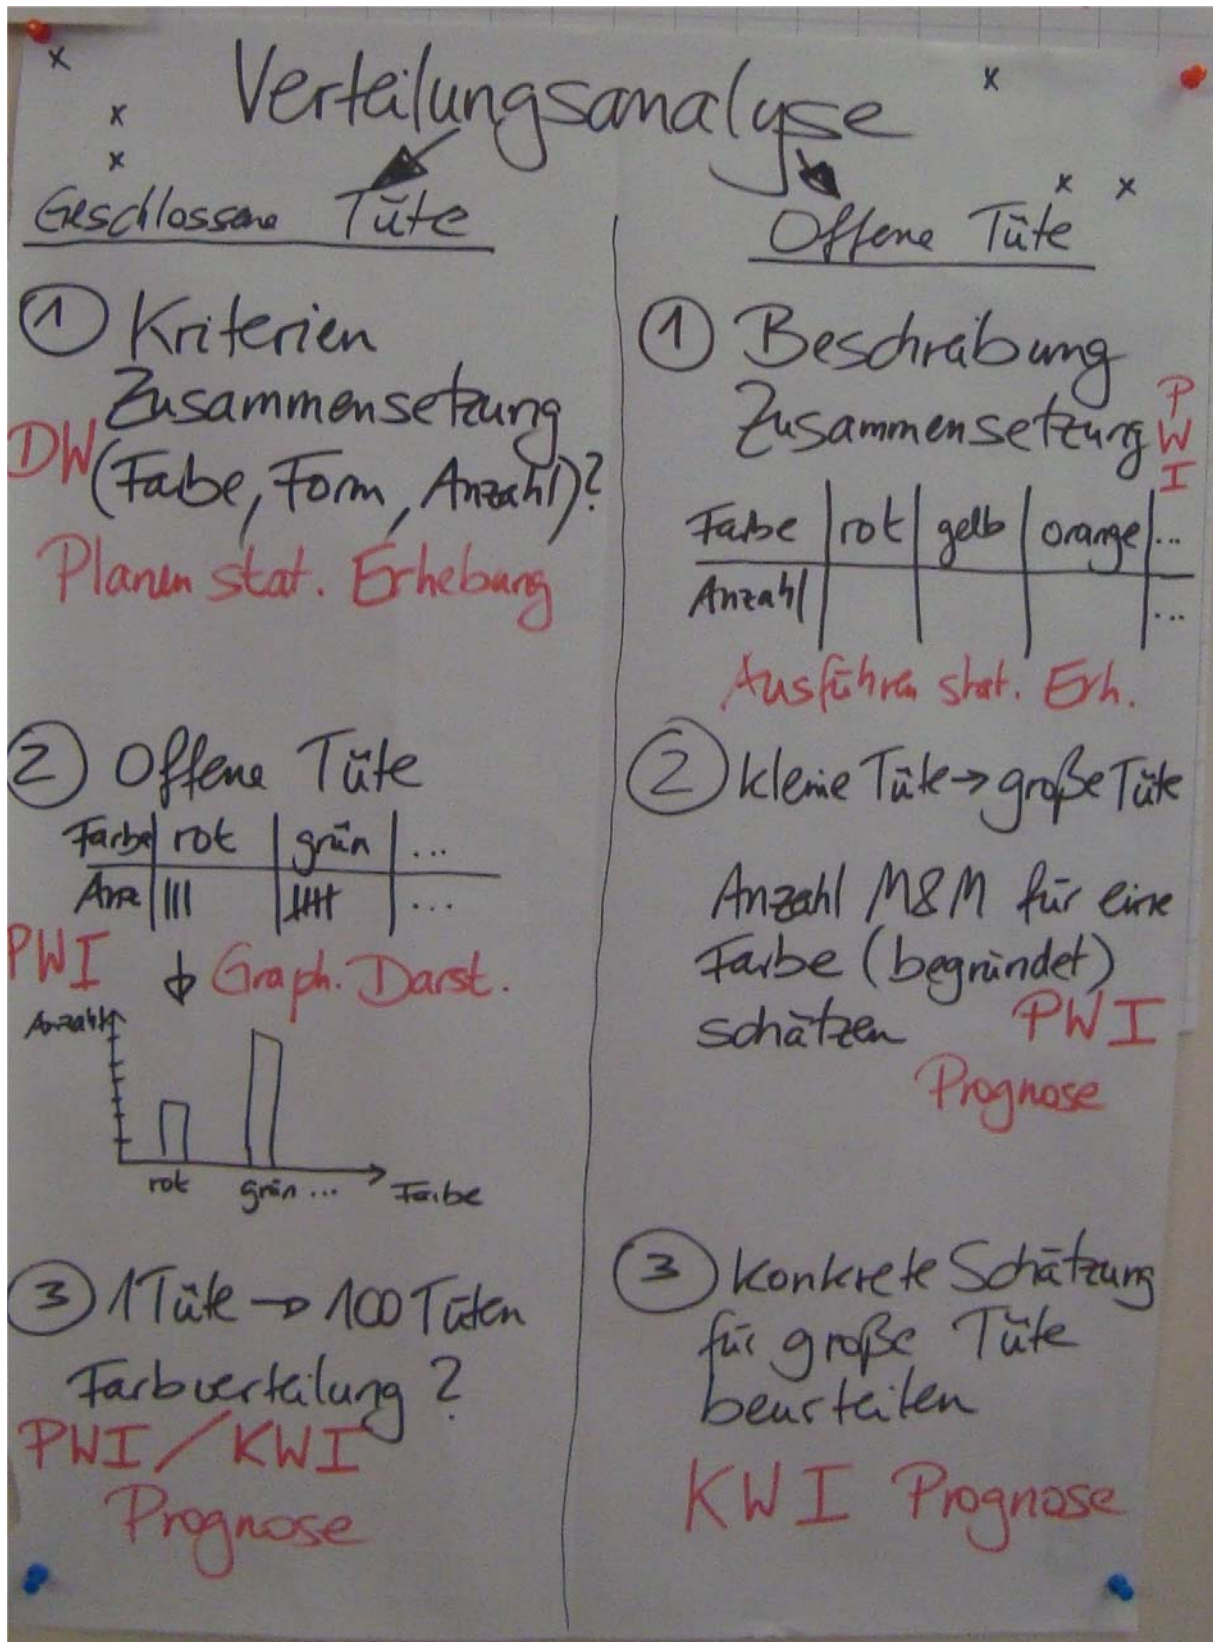 Verteilungsanalyse
Geschlossene Tüte
① Kriterien
Zusammensetzung
DW (Farbe, Form, Anzahl)?
Planen stat. Erhebung
② Offene Tüte
Farbe rot grün ...
Anz ||| |||| ...
PWI Graph. Darst.
Anzahl
rot grün ... Farbe
③ 1 Tüte → 100 Tüten
Farbverteilung?
PWI / KWI
Prognose
Offene Tüte
① Beschreibung
Zusammensetzung PWI
Farbe rot gelb orange ...
Anzahl ...
Ausführen stat. Erh.
② kleine Tüte → große Tüte
Anzahl M&M für eine
Farbe (begründet)
schätzen PWI
Prognose
③ konkrete Schätzung
für große Tüte
beurteilen
KWI Prognose